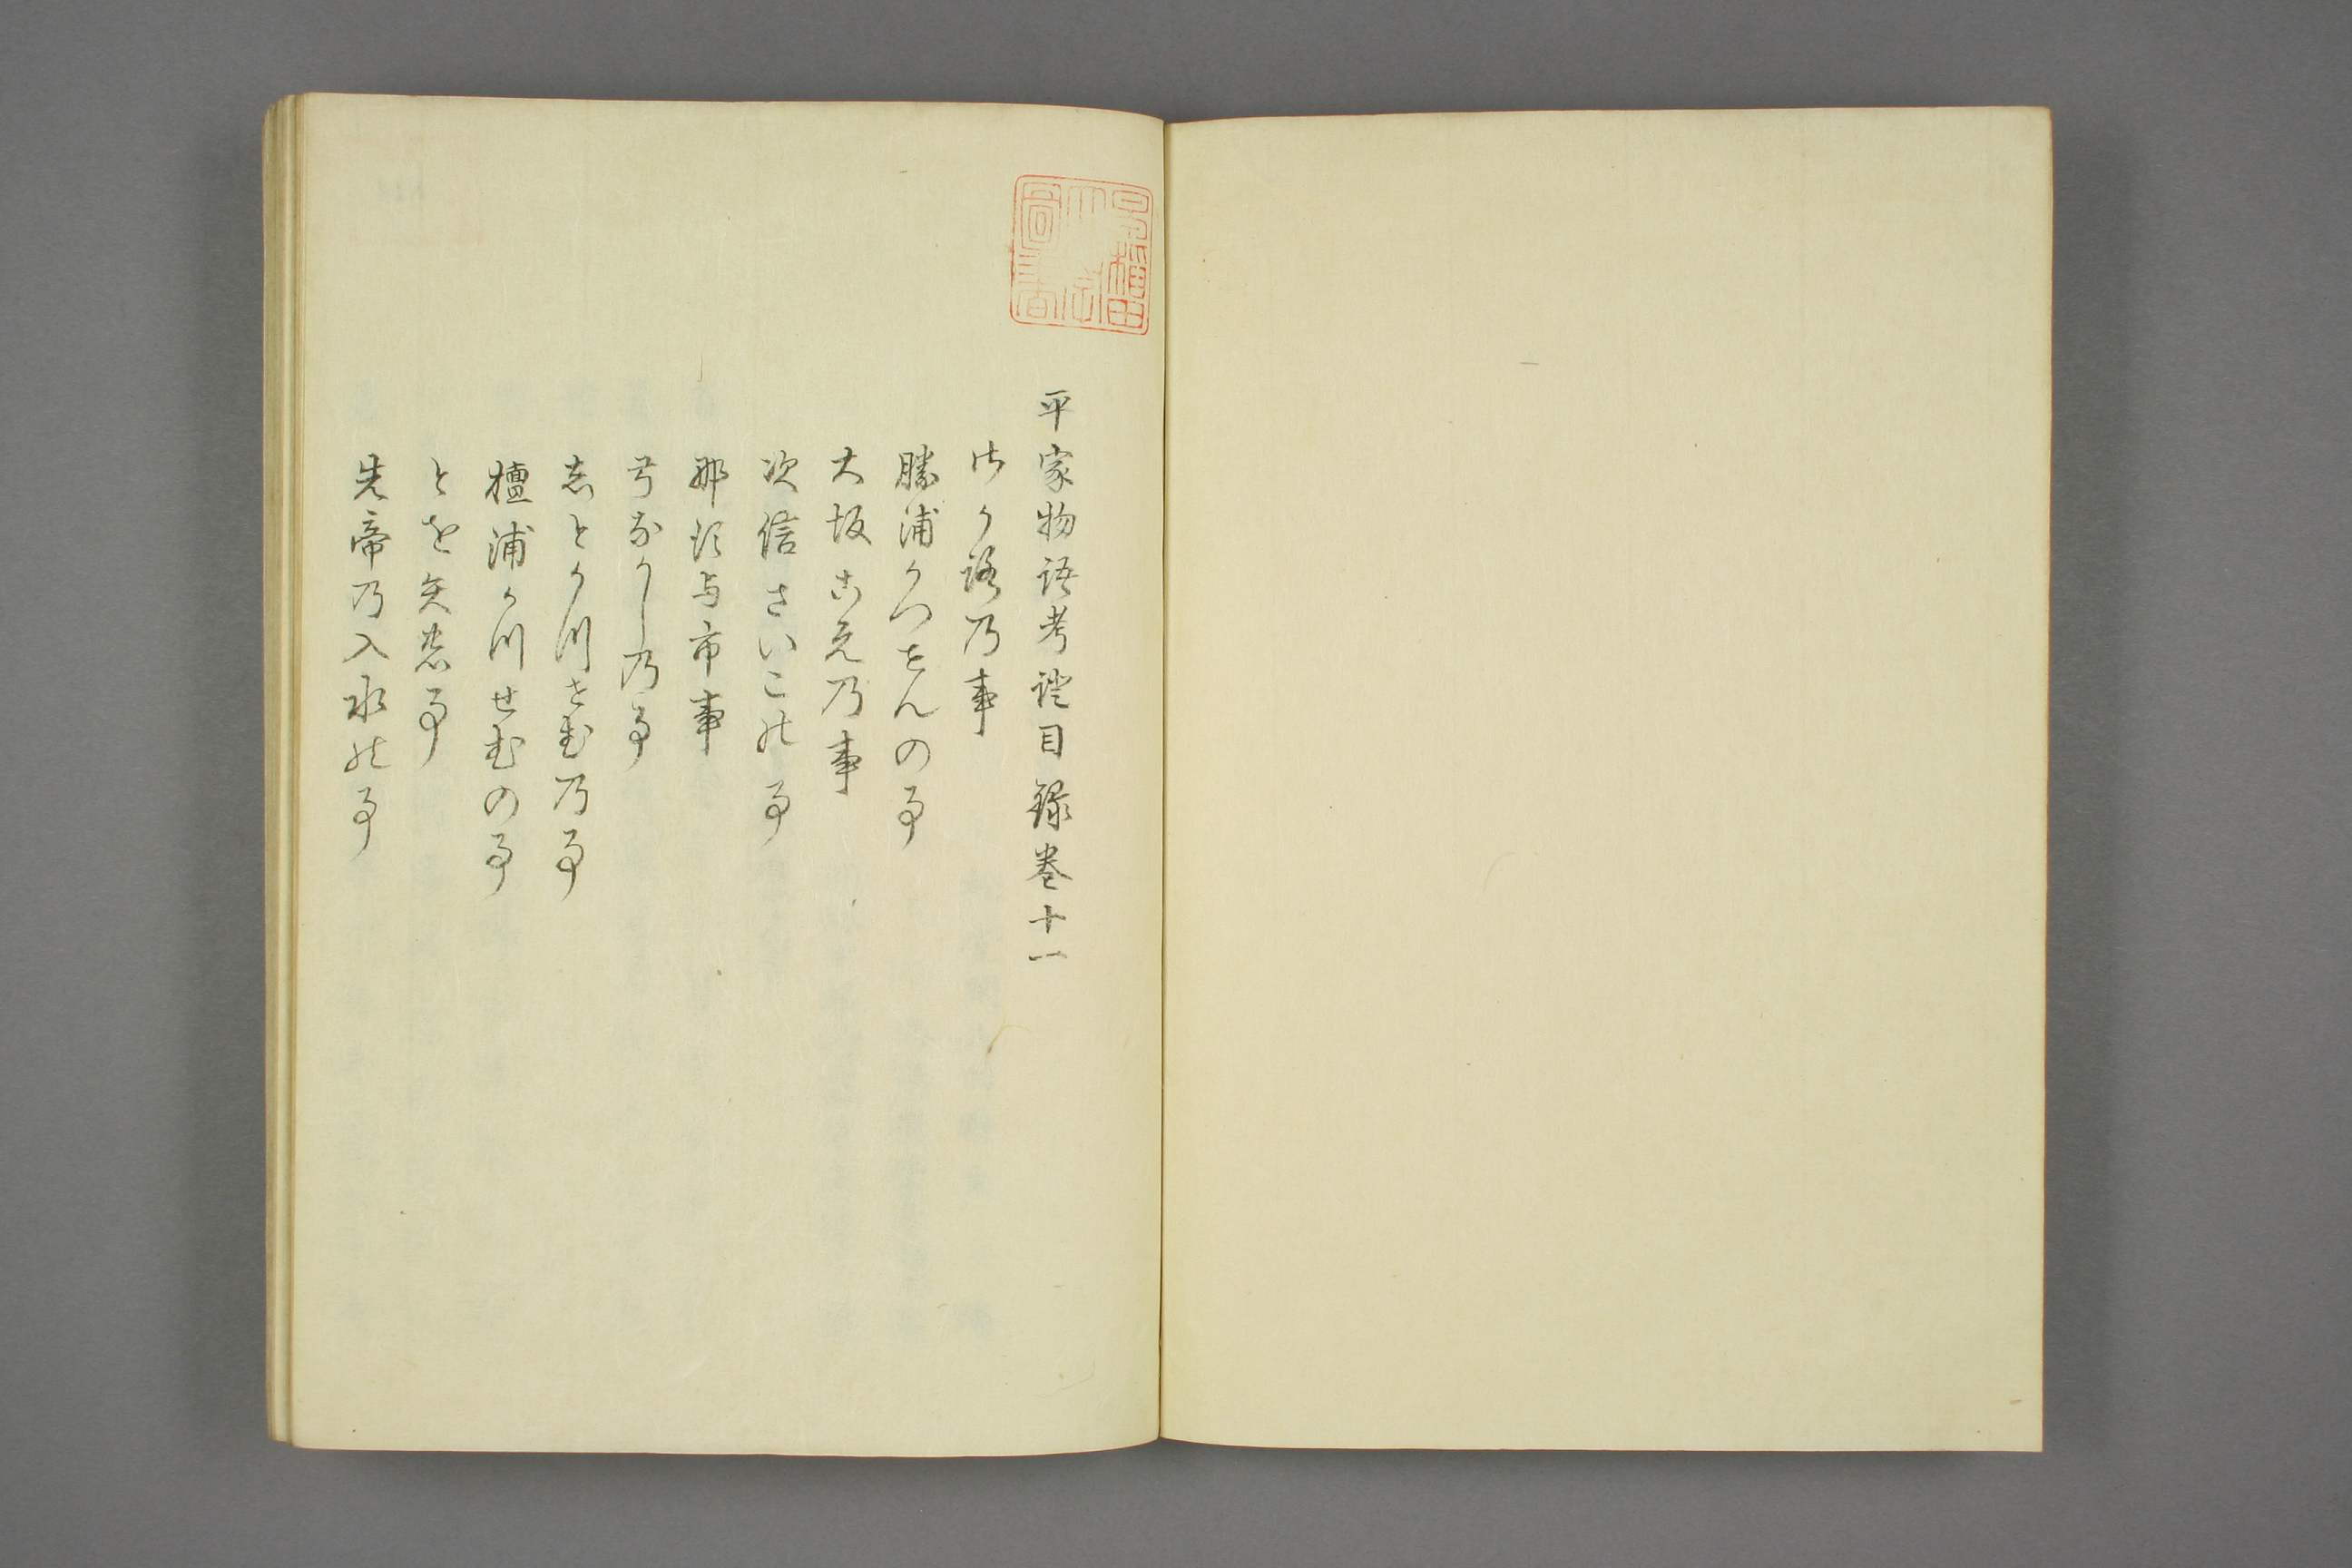 平家物語考證目録巻十一
さかろ乃事
勝浦かつせんの事
大坂こえ乃事
次信さいこの事
那須与市事
弓なかし乃事
志とかつせむ乃事
檀浦かつせむの事
とを矢の事
先帝乃入水の事
早稲田大学圖書